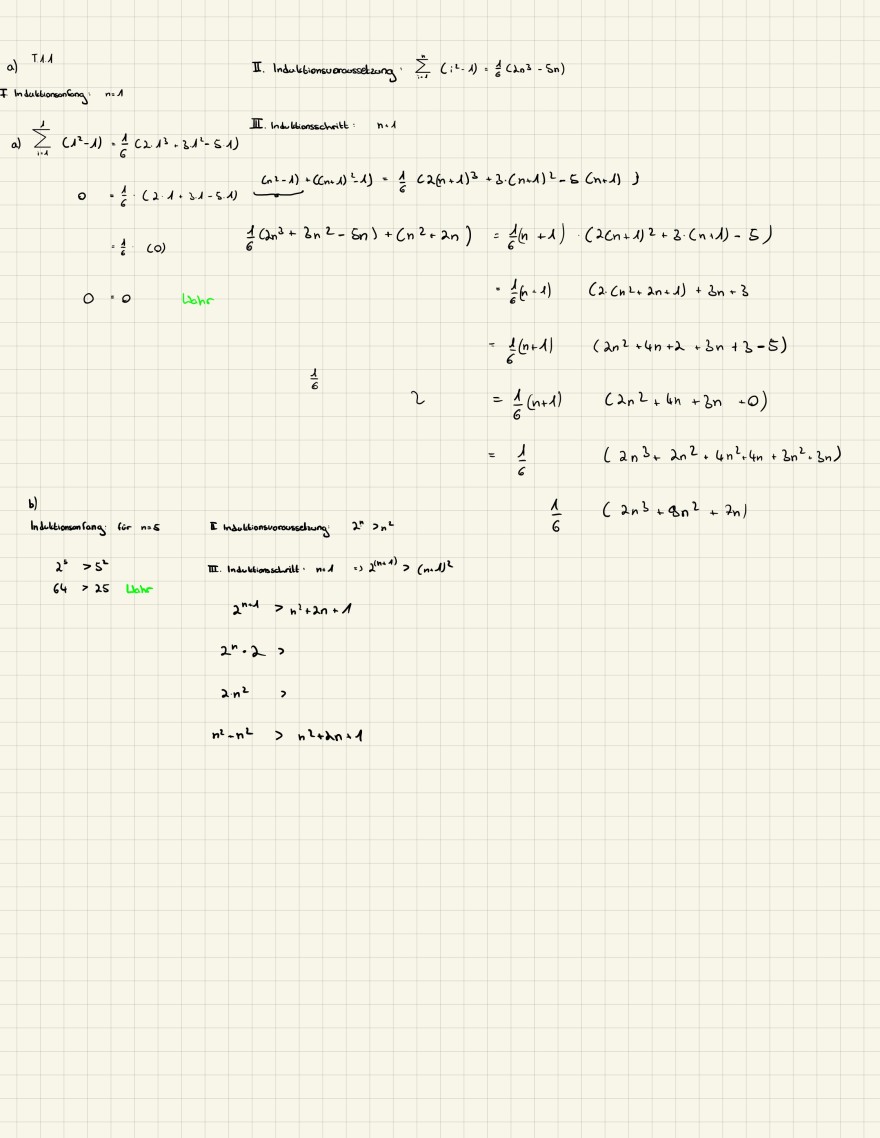 a) T 1.1
I Induktionsanfang: n=1
a) ∑_{i=1}^{1} (1²-1) = 1/6 (2·1³ + 3·1² - 5·1)
0 = 1/6 · (2·1 + 3·1 - 5·1)
= 1/6 · (0)
0 = 0 Wahr
II. Induktionsvoraussetzung: ∑_{i=1}^{n} (i²-1) = 1/6 (2n³ - 5n)
III. Induktionsschritt: n+1
(n²-1) + ((n+1)²-1) = 1/6 (2(n+1)³ + 3·(n+1)² - 5(n+1))
1/6 (2n³ + 3n² - 5n) + (n² + 2n) = 1/6 (n+1) · (2(n+1)² + 3·(n+1) - 5)
= 1/6 (n+1) (2·(n²+2n+1) + 3n + 3
= 1/6 (n+1) (2n² + 4n + 2 + 3n + 3 - 5)
1/6
2 = 1/6 (n+1) (2n² + 4n + 3n + 0)
= 1/6 (2n³ + 2n² + 4n² + 4n + 3n² + 3n)
1/6 (2n³ + 9n² + 7n)
b)
Induktionsanfang: für n=5
2⁵ > 5²
64 > 25 Wahr
II Induktionsvoraussetzung: 2ⁿ > n²
III. Induktionsschritt: n+1 => 2^(n+1) > (n+1)²
2^{n+1} > n² + 2n + 1
2ⁿ · 2 >
2·n² >
n² + n² > n² + 2n + 1